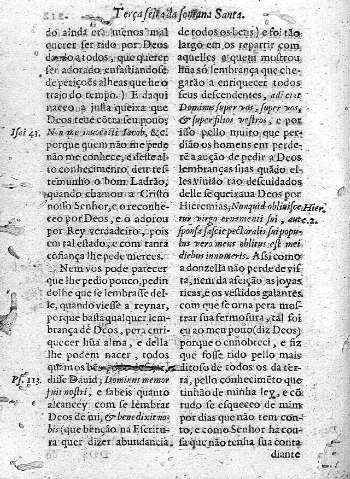 Terça feira da somana Santa.
do ainda era menos mal
querer ser tido por Deos
dando a todos, que querer
ser adorado enfastiandose
de petições alheas que he o
trajo do tempo.) E daqui
naceo a justa queixa que
Deos teue cõtra seu pouo,
Isai 43. Non me inuocasti Iacob, &c.
porque quem não me pede
não me conhece, e deste al-
to conhecimento, deu tes-
teminho o bom Ladrão,
quando chamou a Christo
nosso Senhor, e o reconhe-
ceo por Deos, e o adorou
por Rey verdadeiro, pois
em tal estado, e com tanta
cõfiança lhe pede merces.
Nem vos pode parecer
que lhe pedio pouco, pedin
dolhe que se lembrasse del-
le, quando viesse a reynar,
porque basta qualquer lem
brança de Deos, pera enri-
quecer hũa alma, e della
lhe podem nacer, todos
quantos bẽs
Ps. 113. disse Dauid; Dominus memor
fuit nostri, e sabeis quanto
alcancey com se lembrar
Deos de mi, & benedixit no-
bis (que bẽnção na Escritu-
ra quer dizer abundancia,
de todos os bens;) e foi tão
largo em os repartir com
aquelles a quem mostrou
hũa só lembrança que che-
garão a enriquecer todos
seus descendentes, adijciat
Dominus super vos, super vos,
& super filios vestros, e por
isso pello muito que per-
dião os homens em perde-
rẽ a aução de pedir a Deos
lembranças suas quãdo el-
les viuião tão descuidados
delle se queixaua Deos por
Hieremias, Nunquid obliuisce- Hier.
tur virgo ornamenti sui, aut e. 2.
sponsa fasciæ pectoralis sui popu-
lus vero meus oblitus est mei
diebus innumeris. Assi como
a donzella não perde de vis-
ta, nem da afeição as joyas
ricas, e os vestidos galantes
com que se orna pera mos-
trar sua fermosura, tal foi
eu ao meu pouo (diz Deos)
porque o ennobreci, e fiz
que fosse tido pello mais
ditoso de todos os da ter-
ra, pello conhecimẽto que
tinhão de minha ley, e cõ
tudo se esqueceo de mim
por dias que não tem con-
to, e como Senhor ha cou-
sa que não tenha sua conta
diante